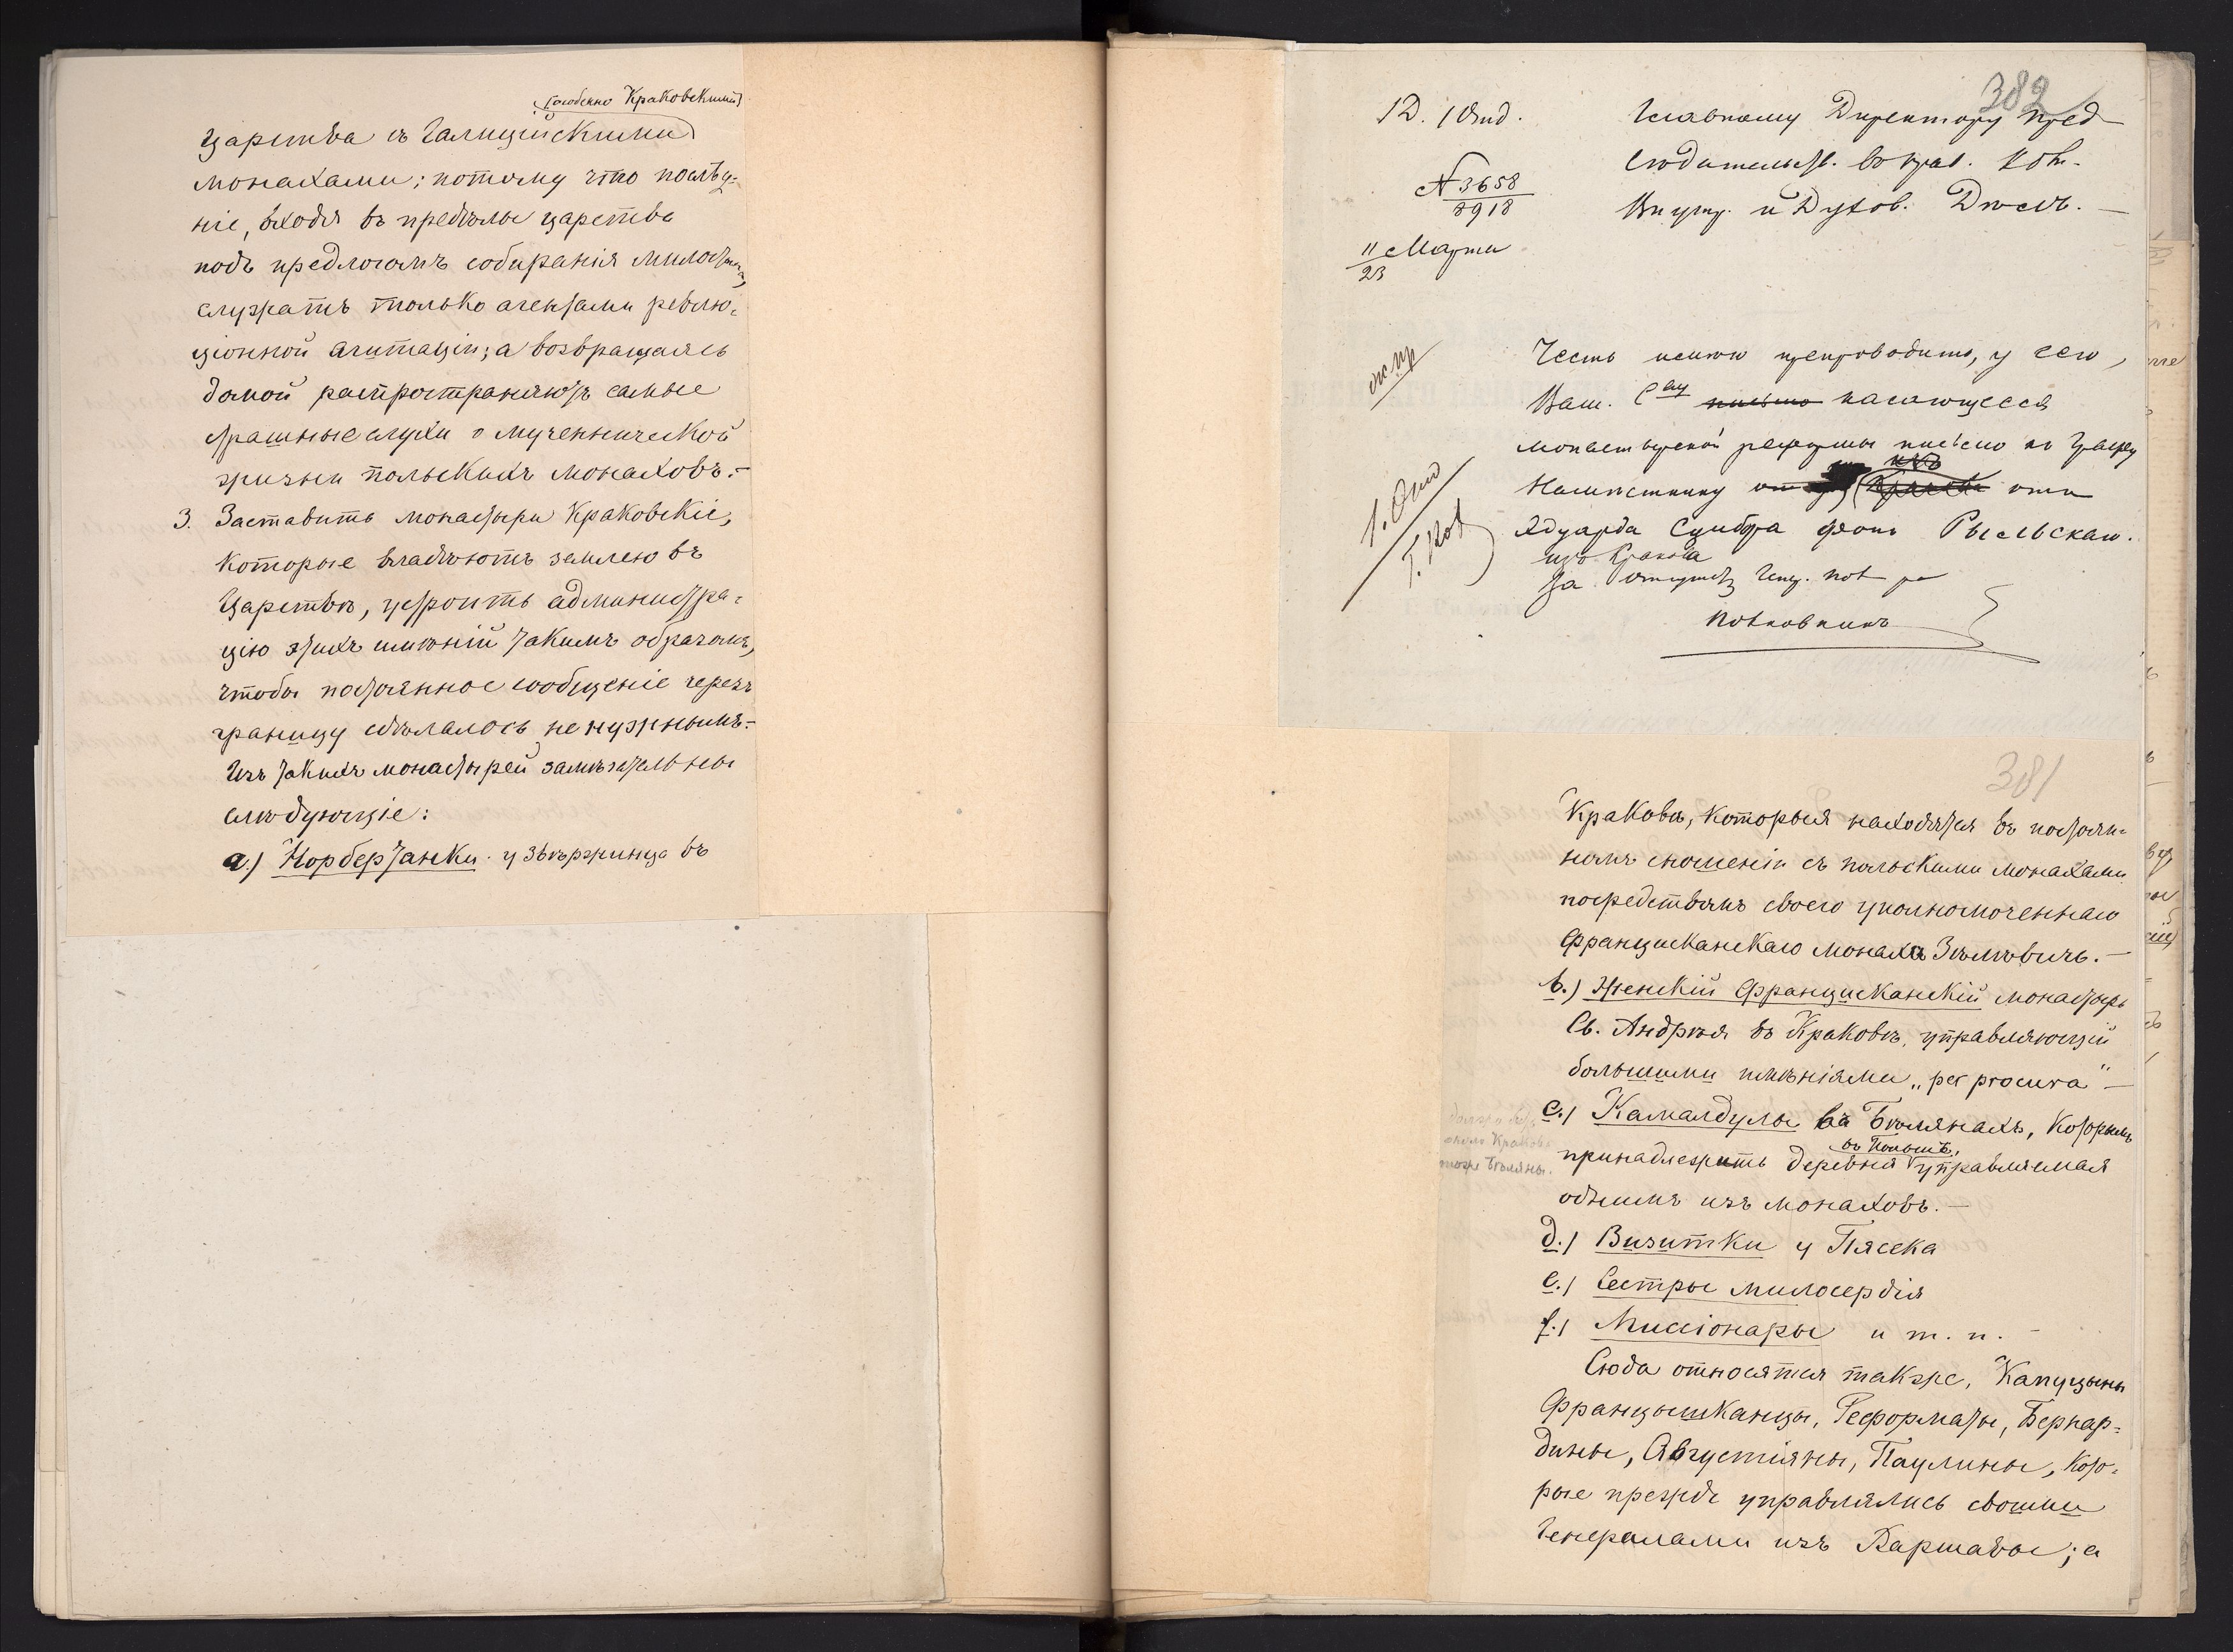 (особенно Краковскими)
царства съ Галицийскими
монахами; потому что послѣд-
ніе, входя въ предѣлы царства
подъ предлогомъ собиранія милостыни,
служатъ только агентами револю-
ціонной агитаціи; а возвращаясь
домой распространяютъ самые
страшные слухи о мученнической
жизни польскихъ монаховъ.-
3. Заставить монастыри Краковскіе,
которые владѣютъ землею въ
Царствѣ, устроить администра-
цію этихъ имѣній такимъ образомъ,
чтобы постоянное сообщеніе черезъ
границу сдѣлалось не нужнымъ.-
Изъ такихъ монастырей замѣчательны
слѣдующіе:
a.) Норбертанки у Звѣржинца въ
382
1D. 1 Отд.
№ 3658
8918
11 Марта
23
Главному Директору Пред-
сѣдательст. въ прав. Ком.
Внутр. и Духов. Дѣлъ. -
Честь имѣю препроводить, у сего,
Ваш. касающееся
монастырской реформы письмо къ Графу
Намѣстнику отъ
Эдуарда фонъ
изъ Кракова
За
Полковникъ
1. Отд
381
Кракова, которыя находятся въ постоян-
номъ сношеніи съ польскими монахами
посредствомъ своего уполномоченнаго
Францисканскаго монаха Зѣлѣвичъ. -
b.) Женскій Францисканскій монастырь
Св. Андрѣя въ Краковѣ, управляющій
большими имѣніями „per procura" -
c.) Камалдулы въ Бѣлянахъ, которымъ
въ Польшѣ,
принадлежитъ деревня управляемая
около Кракова
тоже Бѣляны.
однимъ изъ монаховъ. -
d.) Визитки у Пясека
e.) Сестры милосердія
f.) Миссіонары и т. п. -
Сюда относятся также, Капуцыны
Францышканцы, Реформаты, Бернар-
дины, Августіяны, Паулины, кото-
рые прежде управлялись своими
Генералами изъ Варшавы; а